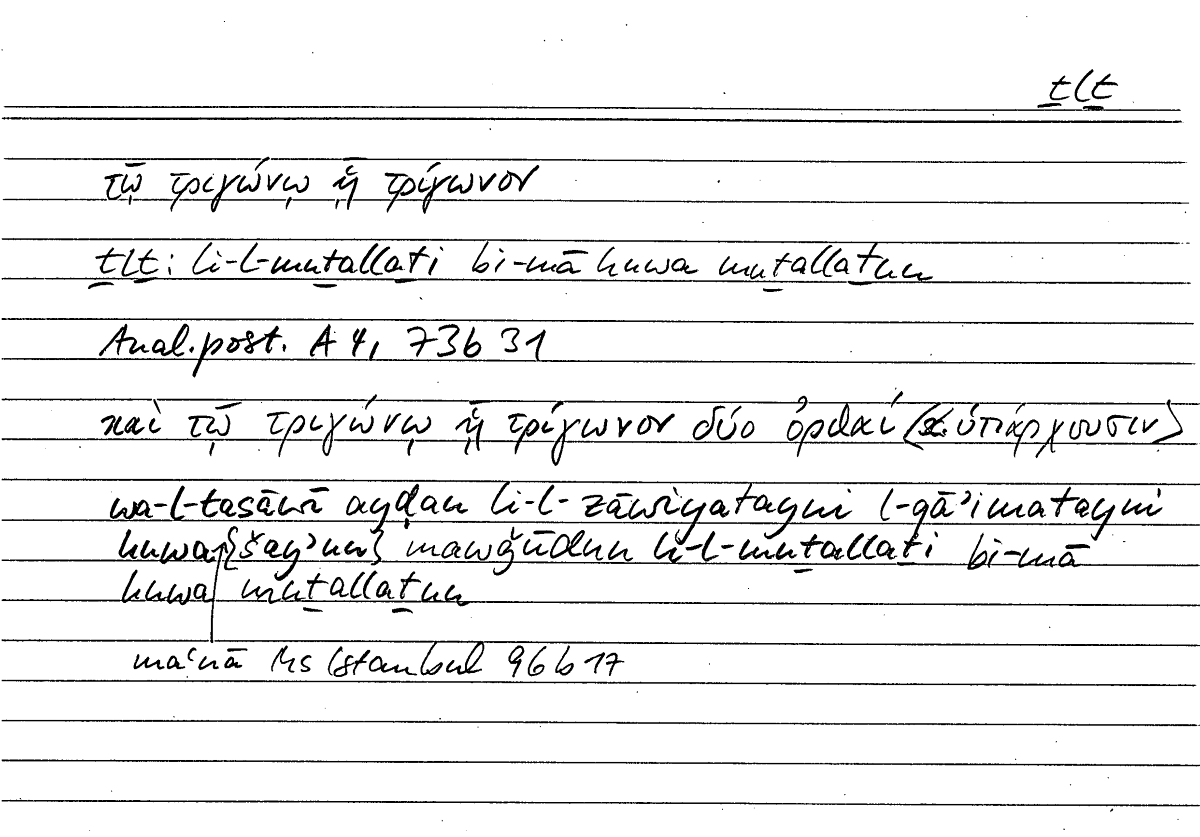 ṯlṯ
τῷ τριγώνῳ ᾗ τρίγωνον
ṯlṯ: li-l-muṯallaṯi bi-mā huwa muṯallaṯun
Anal.post. A 4, 73b 31
καὶ τῷ τριγώνῳ ᾗ τρίγωνον δύο ὀρθαί (sc. ὑπάρχουσιν)
wa-l-tasāwī ayḍan li-l-zāwiyatayni l-qāʾimatayni
huwa {šayʾun} mawǧūdun li-l-muṯallaṯi bi-mā
huwa muṯallaṯun
maʿnā Ms Istanbul 96b 17